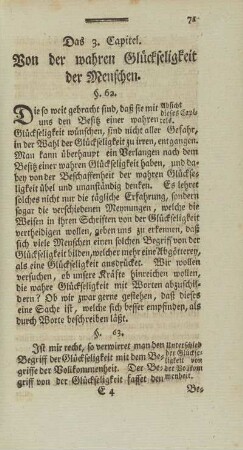 71
Das 3. Capitel.
Von der wahren Glückseligkeit
der Menschen.
§. 62.
Die so weit gebracht sind, daß sie mit
uns den Besitz einer wahren
Glückseligkeit wünschen, sind nicht aller Gefahr,
in der Wahl der Glückseligkeit zu irren, entgangen.
Man kann überhaupt ein Verlangen nach dem
Besitz einer wahren Glückseligkeit haben, und da-
bey von der Beschaffenheit der wahren Glückse-
ligkeit übel und unanständig denken. Es lehret
solches nicht nur die tägliche Erfahrung, sondern
sogar die verschiedenen Meynungen, welche die
Weisen in ihren Schriften von der Glückseligkeit
vertheidigen wollen, geben uns zu erkennen, daß
sich viele Menschen einen solchen Begriff von der
Glückseligkeit bilden, welcher mehr eine Abgötterey,
als eine Glückseligkeit ausdrücket. Wir wollen
versuchen, ob unsere Kräfte hinreichen wollen,
die wahre Glückseligkeit mit Worten abzuschil-
dern? Ob wir zwar gerne gestehen, daß dieses
eine Sache ist, welche sich besser empfinden, als
durch Worte beschreiben läßt.
Absicht
dieses Capi-
tels.
§. 63.
Ist mir recht, so verwirret man den
Begriff der Glückseligkeit mit dem Be-
griffe der Vollkommenheit. Der Be-
griff von der Glückseligkeit fasset den
Unterschied
der Glückse-
ligkeit von
der Vollkom-
menheit.
E 4
Be-